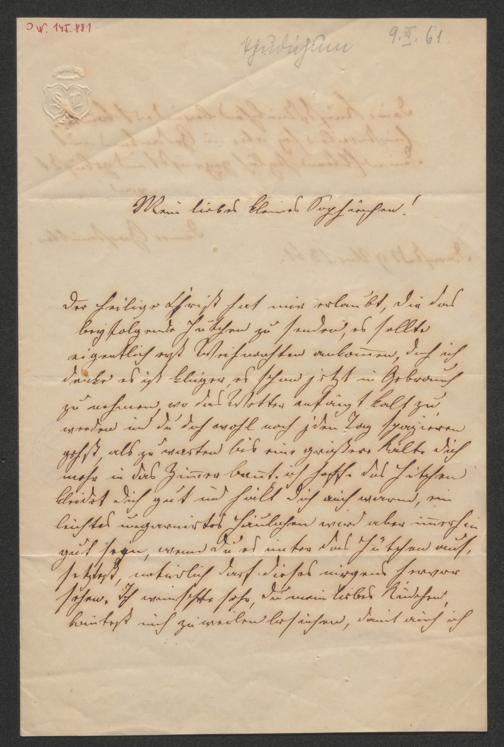 JN. 145.881
9. XI. 61.
Mein liebes kleines Sopherichen!
Der heilige Christ hat mir erlaubt, dir das
beyfolgende Hütchen zu senden, es sollte
eigentlich erst Weihnachten ankommen, doch ich
denke es ist klüger, es schon jetzt in Gebrauch
zu nehmen, wo das Wetter anfängt kalt zu
werden und du doch wohl noch jeden Tag spazieren
gehst, als zu warten bis eine größere Kälte dich
mehr in das Zimmer bannt. ich hoffe das Hütchen
kleidet dich gut und hält dich auch warm, ein
leichtes ungarnirtes Häubchen wird aber immerhin
gut seyn, wenn du es unter das Hütchen auf-
setzest, natürlich darf dieses nirgens hervor
sehen. Ich wünschte sehr, du mein liebes Kindchen,
könntest mich zuweilen besuchen, damit auch ich